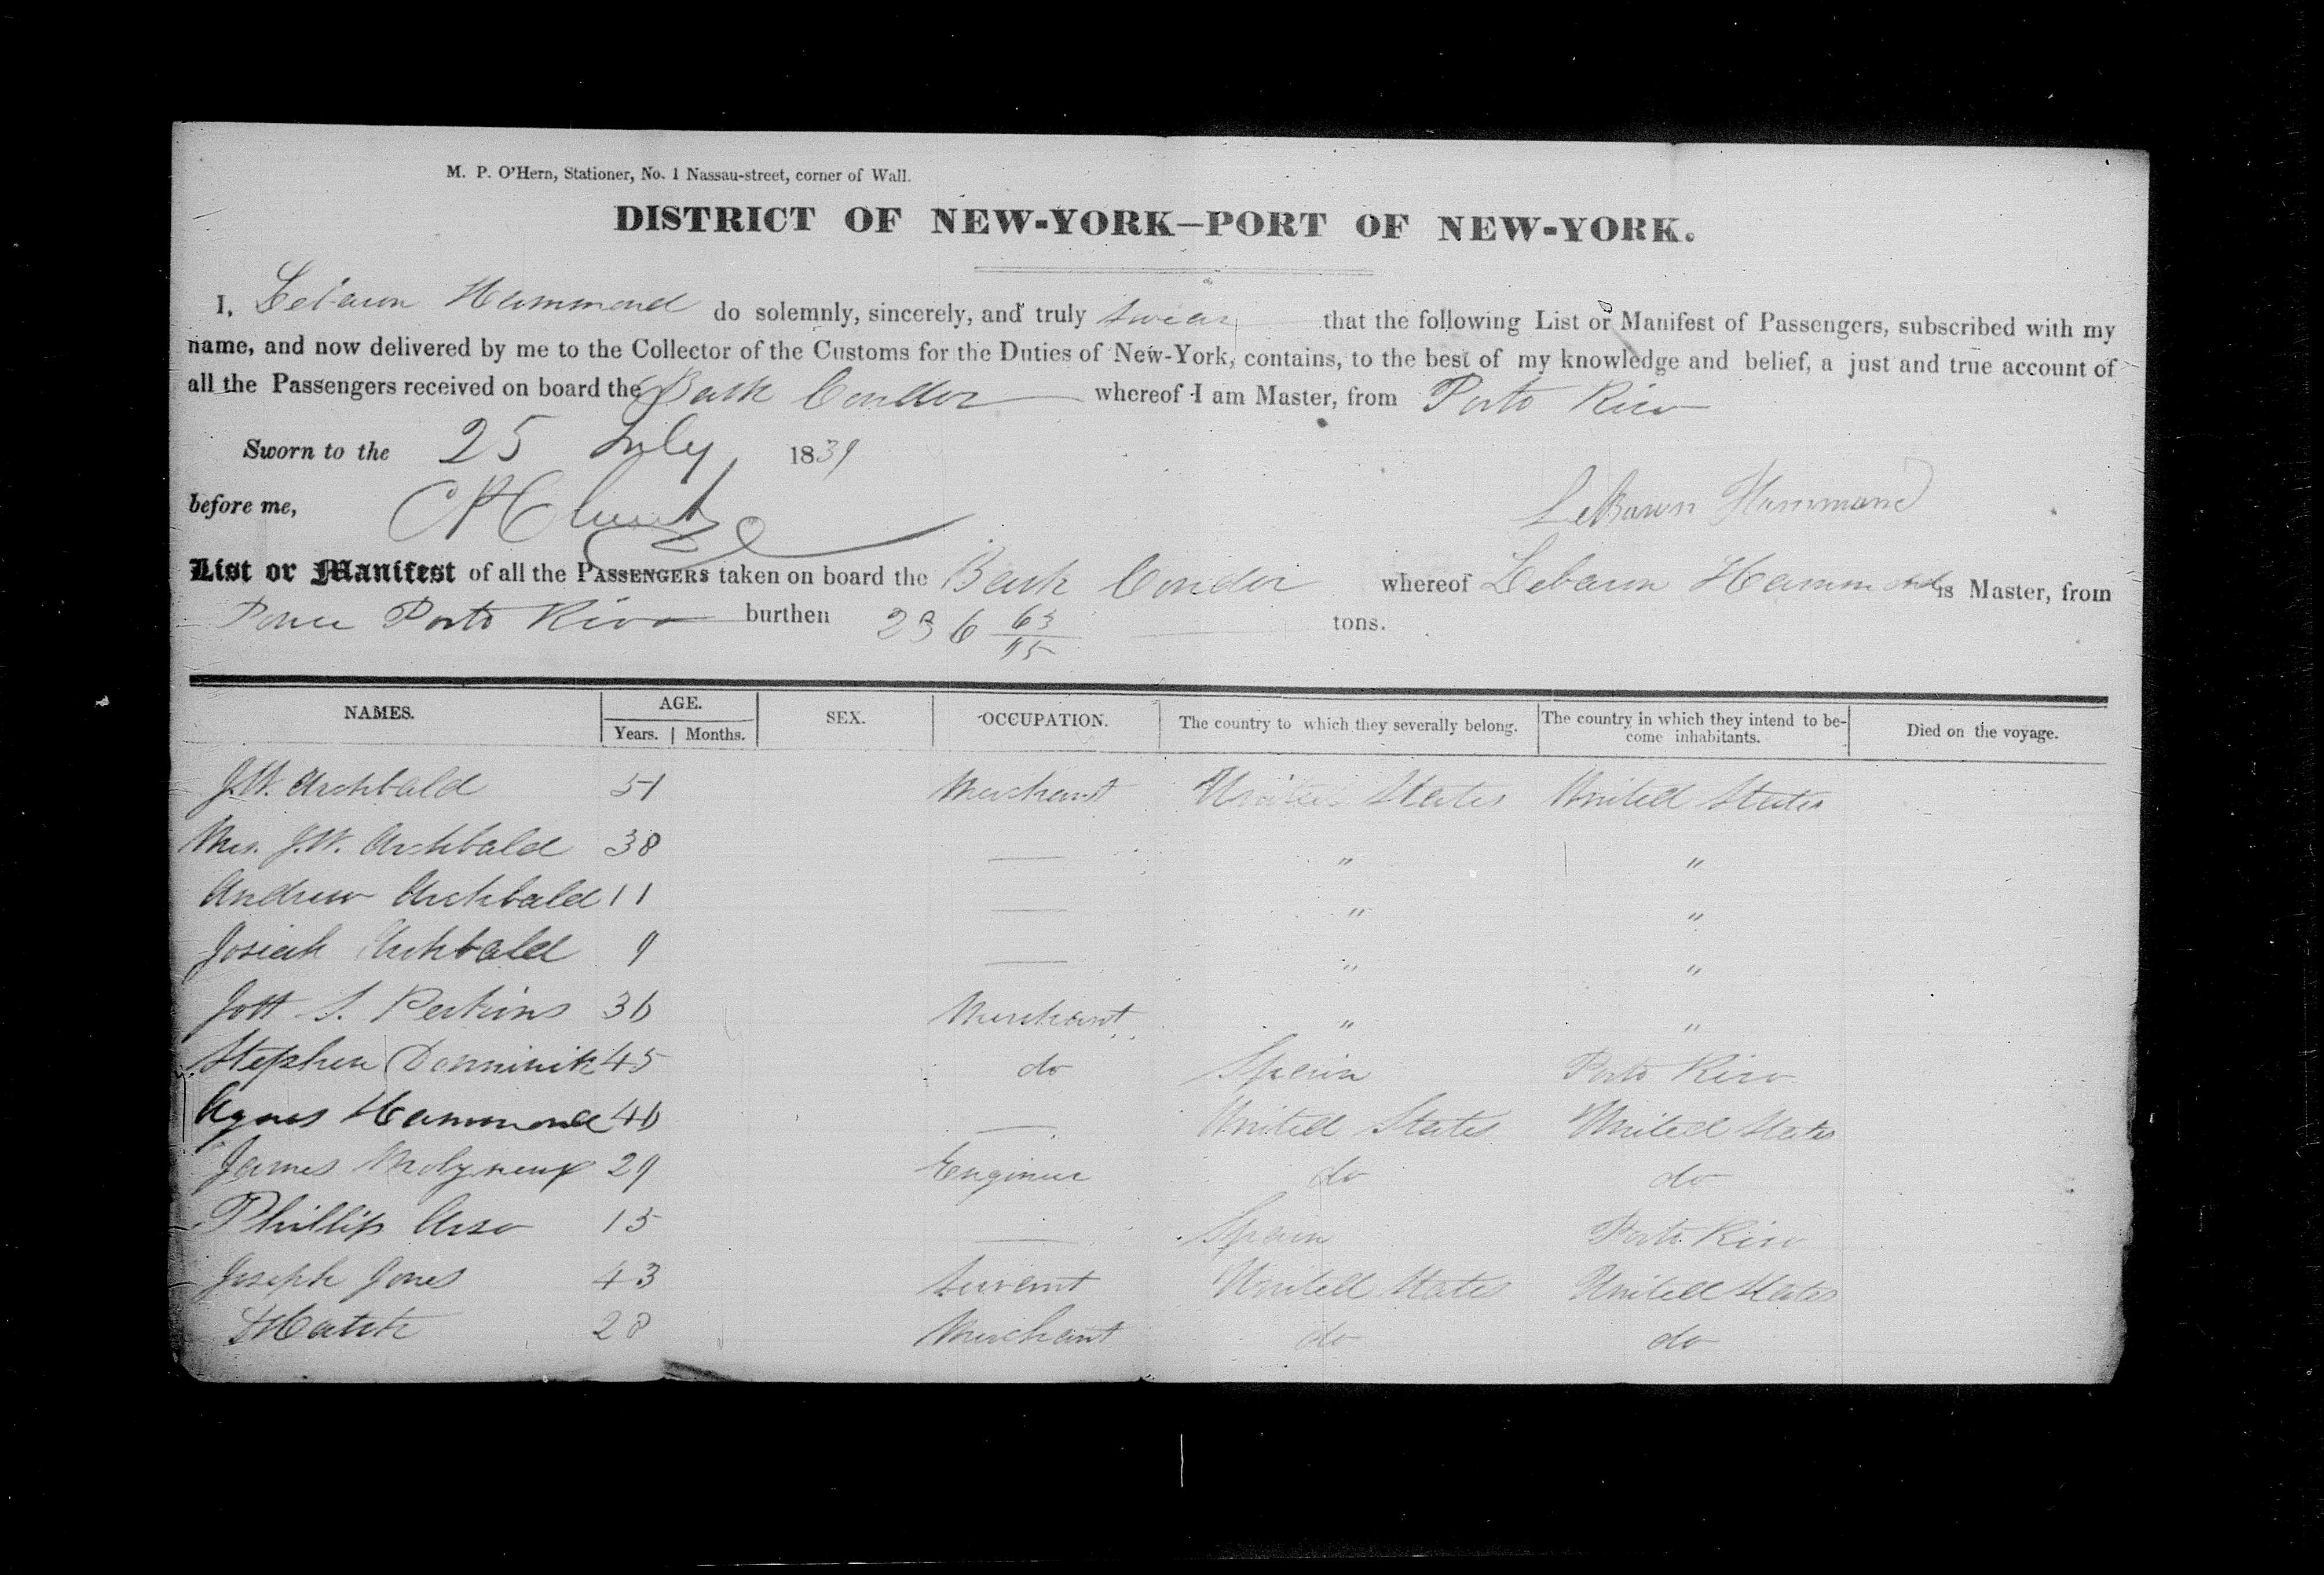 M. P. O'Hern, Stationer, No. 1 Nassau-street, corner of Wall.
DISTRICT OF NEW-YORK—PORT OF NEW-YORK.
I, Lebaron Hammond do solemnly, sincerely, and truly swear that the following List or Manifest of Passengers, subscribed with my
name, and now delivered by me to the Collector of the Customs for the Duties of New-York, contains, to the best of my knowledge and belief, a just and true account of
all the Passengers received on board the Bark Condor whereof I am Master, from Porto Rico
Sworn to the 25 July 1839
before me,
LeBaron Hammond
List or Manifest of all the PASSENGERS taken on board the Bark Condor whereof Lebaron Hammond is Master, from
Ponce Porto Rico burthen 236 63/95 tons.
NAMES. AGE. Years. Months. SEX. OCCUPATION. The country to which they severally belong. The country in which they intend to become inhabitants. Died on the voyage.
J.W. Archbald 51 Merchant United States United States
Mrs. J.W. Archbald 38 — " "
Andrew Archbald 11 — " "
Josiah Archbald 9 — " "
S. Perkins 36 Merchant " "
Stephen Dominik 45 do Spain Porto Rico
Agnes Hammond 46 — United States United States
James Molyneux 29 Engineer do do
Phillip 15 — Spain Porto Rico
Joseph Jones 43 Servant United States United States
28 Merchant do do